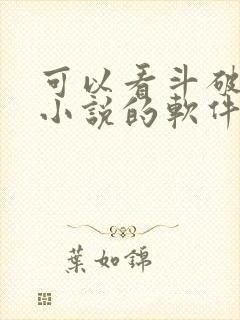 可以看斗破
小說的軟件
葉如錦